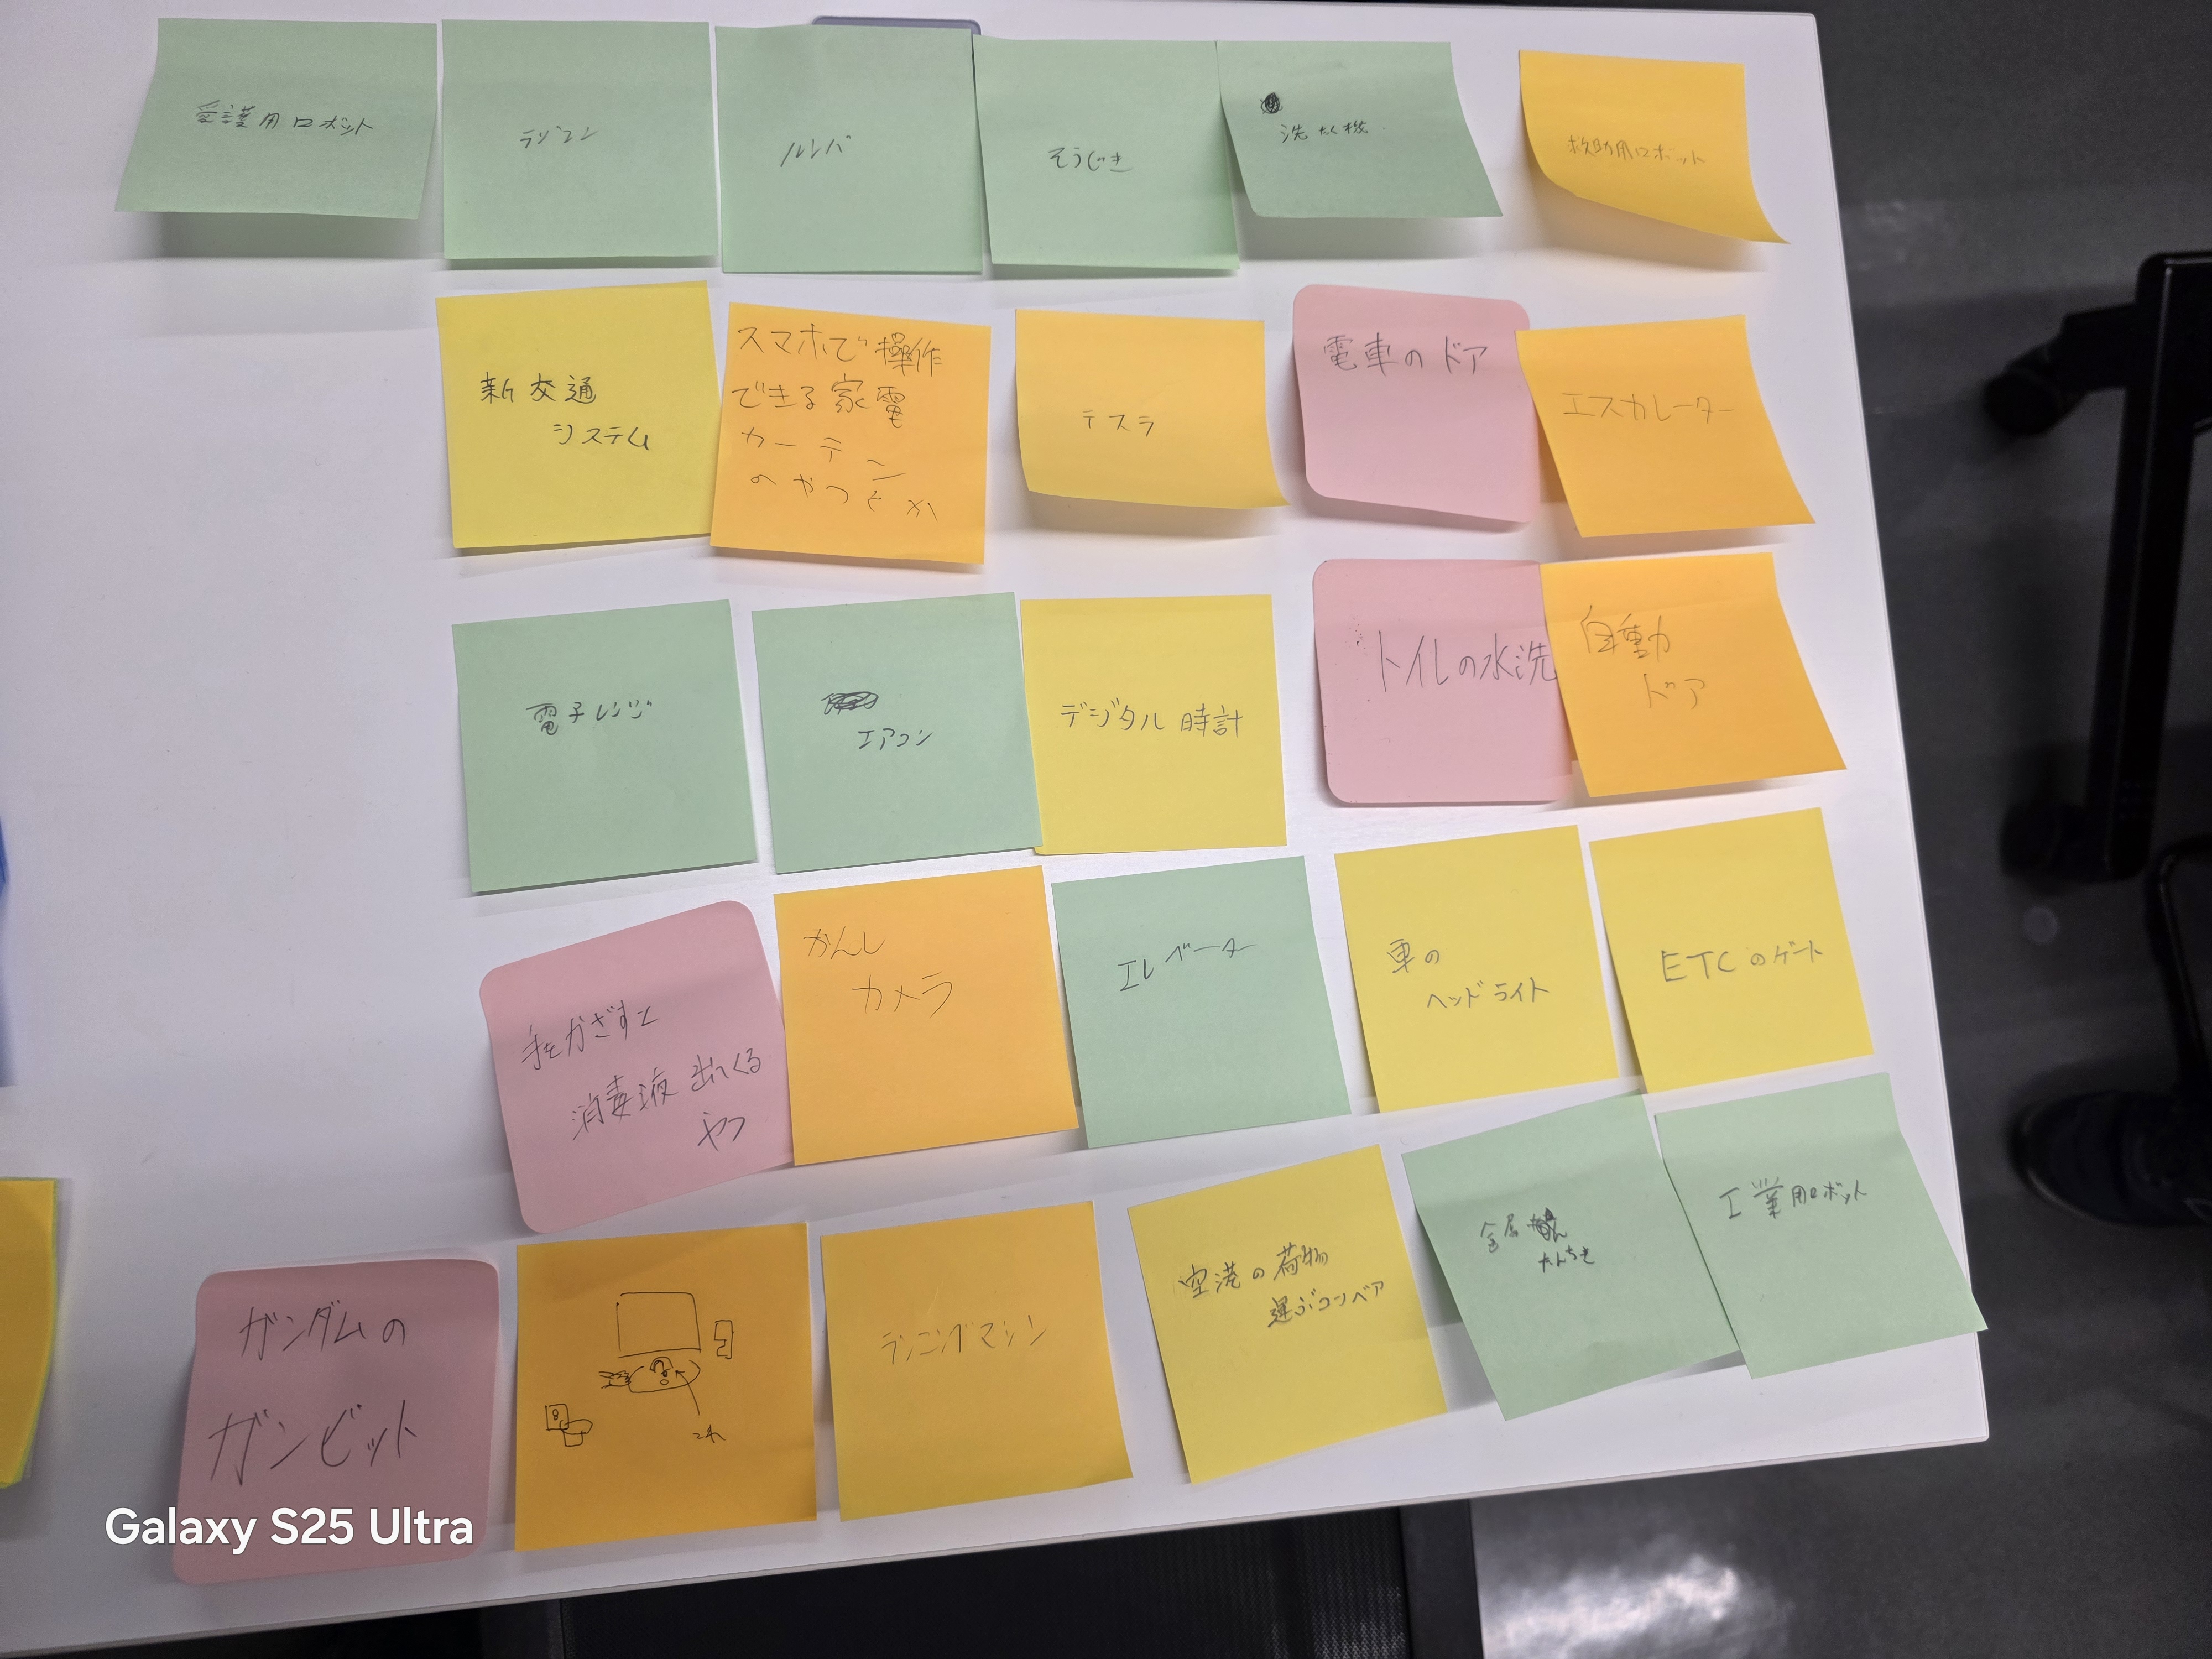 愛護用ロボット
ラジコン
ルンバ
そうじき
洗たく機
救助用ロボット
新交通
システム
スマホで操作
できる家電
カーテン
のやつとか
テスラ
電車のドア
エスカレーター
電子レンジ
エアコン
デジタル時計
トイレの水洗
自動
ドア
手をかざすと
消毒液出てくる
やつ
かんし
カメラ
エレベーター
車の
ヘッドライト
ETCのゲート
ガンダムの
ガンビット
これ
ランニングマシン
空港の荷物
運ぶコンベア
金属
たんちき
工業用ロボット
Galaxy S25 Ultra